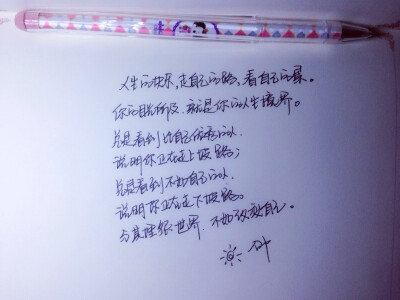 人生的快乐,走自己的路,看自己的景。
你的目光所及,就是你的人生境界。
总是看到比自己优秀的人
说明你正在走上坡路;
总是看到不如自己的人
说明你正在走下坡路。
与其埋怨世界,不如改变自己。